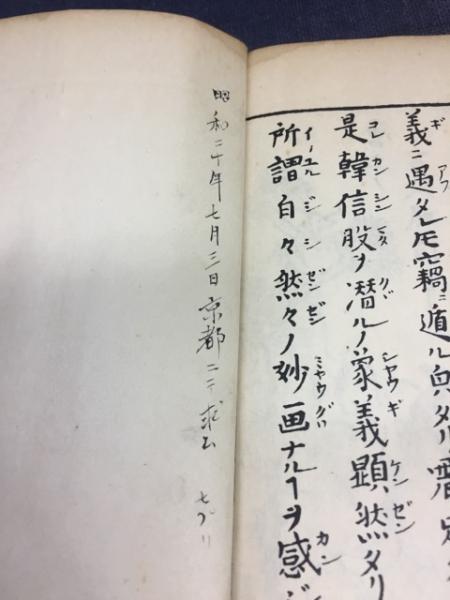 義ニ遇タレ𪜈竊ニ遁ル
是韓信股ヲ潜ルノ象義顕然タリ
所謂自々然々ノ妙画ナルヿヲ感ジ
昭和二十年七月三日京都ニテ求ム